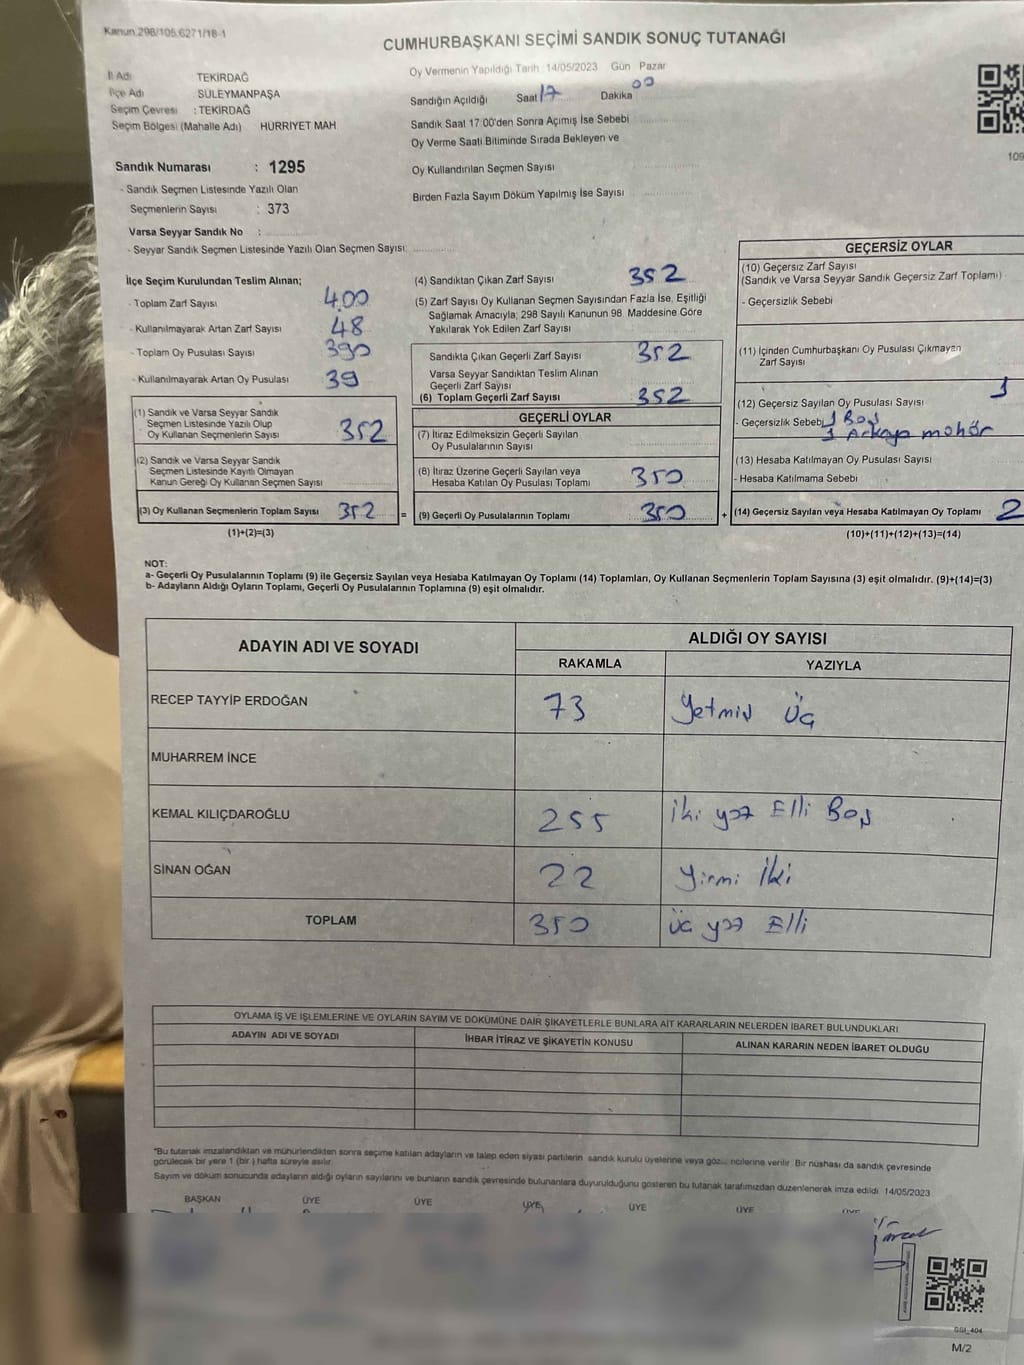 Kanun.298/105,6271/18-1
CUMHURBAŞKANI SEÇİMİ SANDIK SONUÇ TUTANAĞI
İl Adı TEKİRDAĞ
İlçe Adı SÜLEYMANPAŞA
Seçim Çevresi : TEKİRDAĞ
Seçim Bölgesi (Mahalle Adı) HÜRRİYET MAH
Oy Vermenin Yapıldığı Tarih : 14/05/2023 Gün Pazar
Sandığın Açıldığı Saat 17 Dakika 00
Sandık Saat 17:00'den Sonra Açımış İse Sebebi
Oy Verme Saati Bitiminde Sırada Bekleyen ve
Oy Kullandırılan Seçmen Sayısı
Birden Fazla Sayım Döküm Yapılmış İse Sayısı
109
Sandık Numarası : 1295
- Sandık Seçmen Listesinde Yazılı Olan
Seçmenlerin Sayısı : 373
Varsa Seyyar Sandık No :
- Seyyar Sandık Seçmen Listesinde Yazılı Olan Seçmen Sayısı:
İlçe Seçim Kurulundan Teslim Alınan;
- Toplam Zarf Sayısı 400
- Kullanılmayarak Artan Zarf Sayısı 48
- Toplam Oy Pusulası Sayısı 390
- Kullanılmayarak Artan Oy Pusulası 39
(1) Sandık ve Varsa Seyyar Sandık
Seçmen Listesinde Yazılı Olup
Oy Kullanan Seçmenlerin Sayısı 352
(2) Sandık ve Varsa Seyyar Sandık
Seçmen Listesinde Kayıtlı Olmayan
Kanun Gereği Oy Kullanan Seçmen Sayısı
(3) Oy Kullanan Seçmenlerin Toplam Sayısı 352 =
(1)+(2)=(3)
(4) Sandıktan Çıkan Zarf Sayısı 352
(5) Zarf Sayısı Oy Kullanan Seçmen Sayısından Fazla İse, Eşitliği
Sağlamak Amacıyla; 298 Sayılı Kanunun 98. Maddesine Göre
Yakılarak Yok Edilen Zarf Sayısı
Sandıkta Çıkan Geçerli Zarf Sayısı 352
Varsa Seyyar Sandıktan Teslim Alınan
Geçerli Zarf Sayısı
(6) Toplam Geçerli Zarf Sayısı 352
GEÇERLİ OYLAR
(7) İtiraz Edilmeksizin Geçerli Sayılan
Oy Pusulalarının Sayısı
(8) İtiraz Üzerine Geçerli Sayılan veya
Hesaba Katılan Oy Pusulası Toplamı 350
(9) Geçerli Oy Pusulalarının Toplamı 350 +
GEÇERSİZ OYLAR
(10) Geçersiz Zarf Sayısı
(Sandık ve Varsa Seyyar Sandık Geçersiz Zarf Toplamı)
- Geçersizlik Sebebi
(11) İçinden Cumhurbaşkanı Oy Pusulası Çıkmayan
Zarf Sayısı
1
(12) Geçersiz Sayılan Oy Pusulası Sayısı
- Geçersizlik Sebebi 1 Boş
1 Arkaya mühür
(13) Hesaba Katılmayan Oy Pusulası Sayısı
- Hesaba Katılmama Sebebi
(14) Geçersiz Sayılan veya Hesaba Katılmayan Oy Toplamı 2
(10)+(11)+(12)+(13)=(14)
NOT:
a- Geçerli Oy Pusulalarının Toplamı (9) ile Geçersiz Sayılan veya Hesaba Katılmayan Oy Toplamı (14) Toplamları, Oy Kullanan Seçmenlerin Toplam Sayısına (3) eşit olmalıdır. (9)+(14)=(3)
b- Adayların Aldığı Oyların Toplamı, Geçerli Oy Pusulalarının Toplamına (9) eşit olmalıdır.
ADAYIN ADI VE SOYADI ALDIĞI OY SAYISI
RAKAMLA YAZIYLA
RECEP TAYYİP ERDOĞAN 73 Yetmiş Üç
MUHARREM İNCE
KEMAL KILIÇDAROĞLU 255 İki yüz Elli Beş
SİNAN OĞAN 22 Yirmi İki
TOPLAM 350 Üç yüz Elli
OYLAMA İŞ VE İŞLEMLERİNE VE OYLARIN SAYIM VE DÖKÜMÜNE DAİR ŞİKAYETLERLE BUNLARA AİT KARARLARIN NELERDEN İBARET BULUNDUKLARI
ADAYIN ADI VE SOYADI İHBAR İTİRAZ VE ŞİKAYETİN KONUSU ALINAN KARARIN NEDEN İBARET OLDUĞU
"Bu tutanak imzalandıktan ve mühürlendikten sonra seçime katılan adayların ve talep eden siyasi partilerin sandık kurulu üyelerine veya verilir. Bir nüshası da sandık çevresinde
görülecek bir yere 1 (bir ) hafta süreyle asılır.
Sayım ve döküm sonucunda adayların aldığı oyların sayılarını ve bunların sandık çevresinde bulunanlara duyurulduğunu gösteren bu tutanak tarafımızdan düzenlenerek imza edildi. 14/05/2023
BAŞKAN ÜYE ÜYE ÜYE ÜYE ÜYE ÜYE
GGI_404
M/2